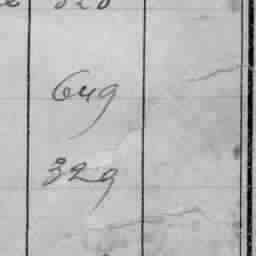 649
329